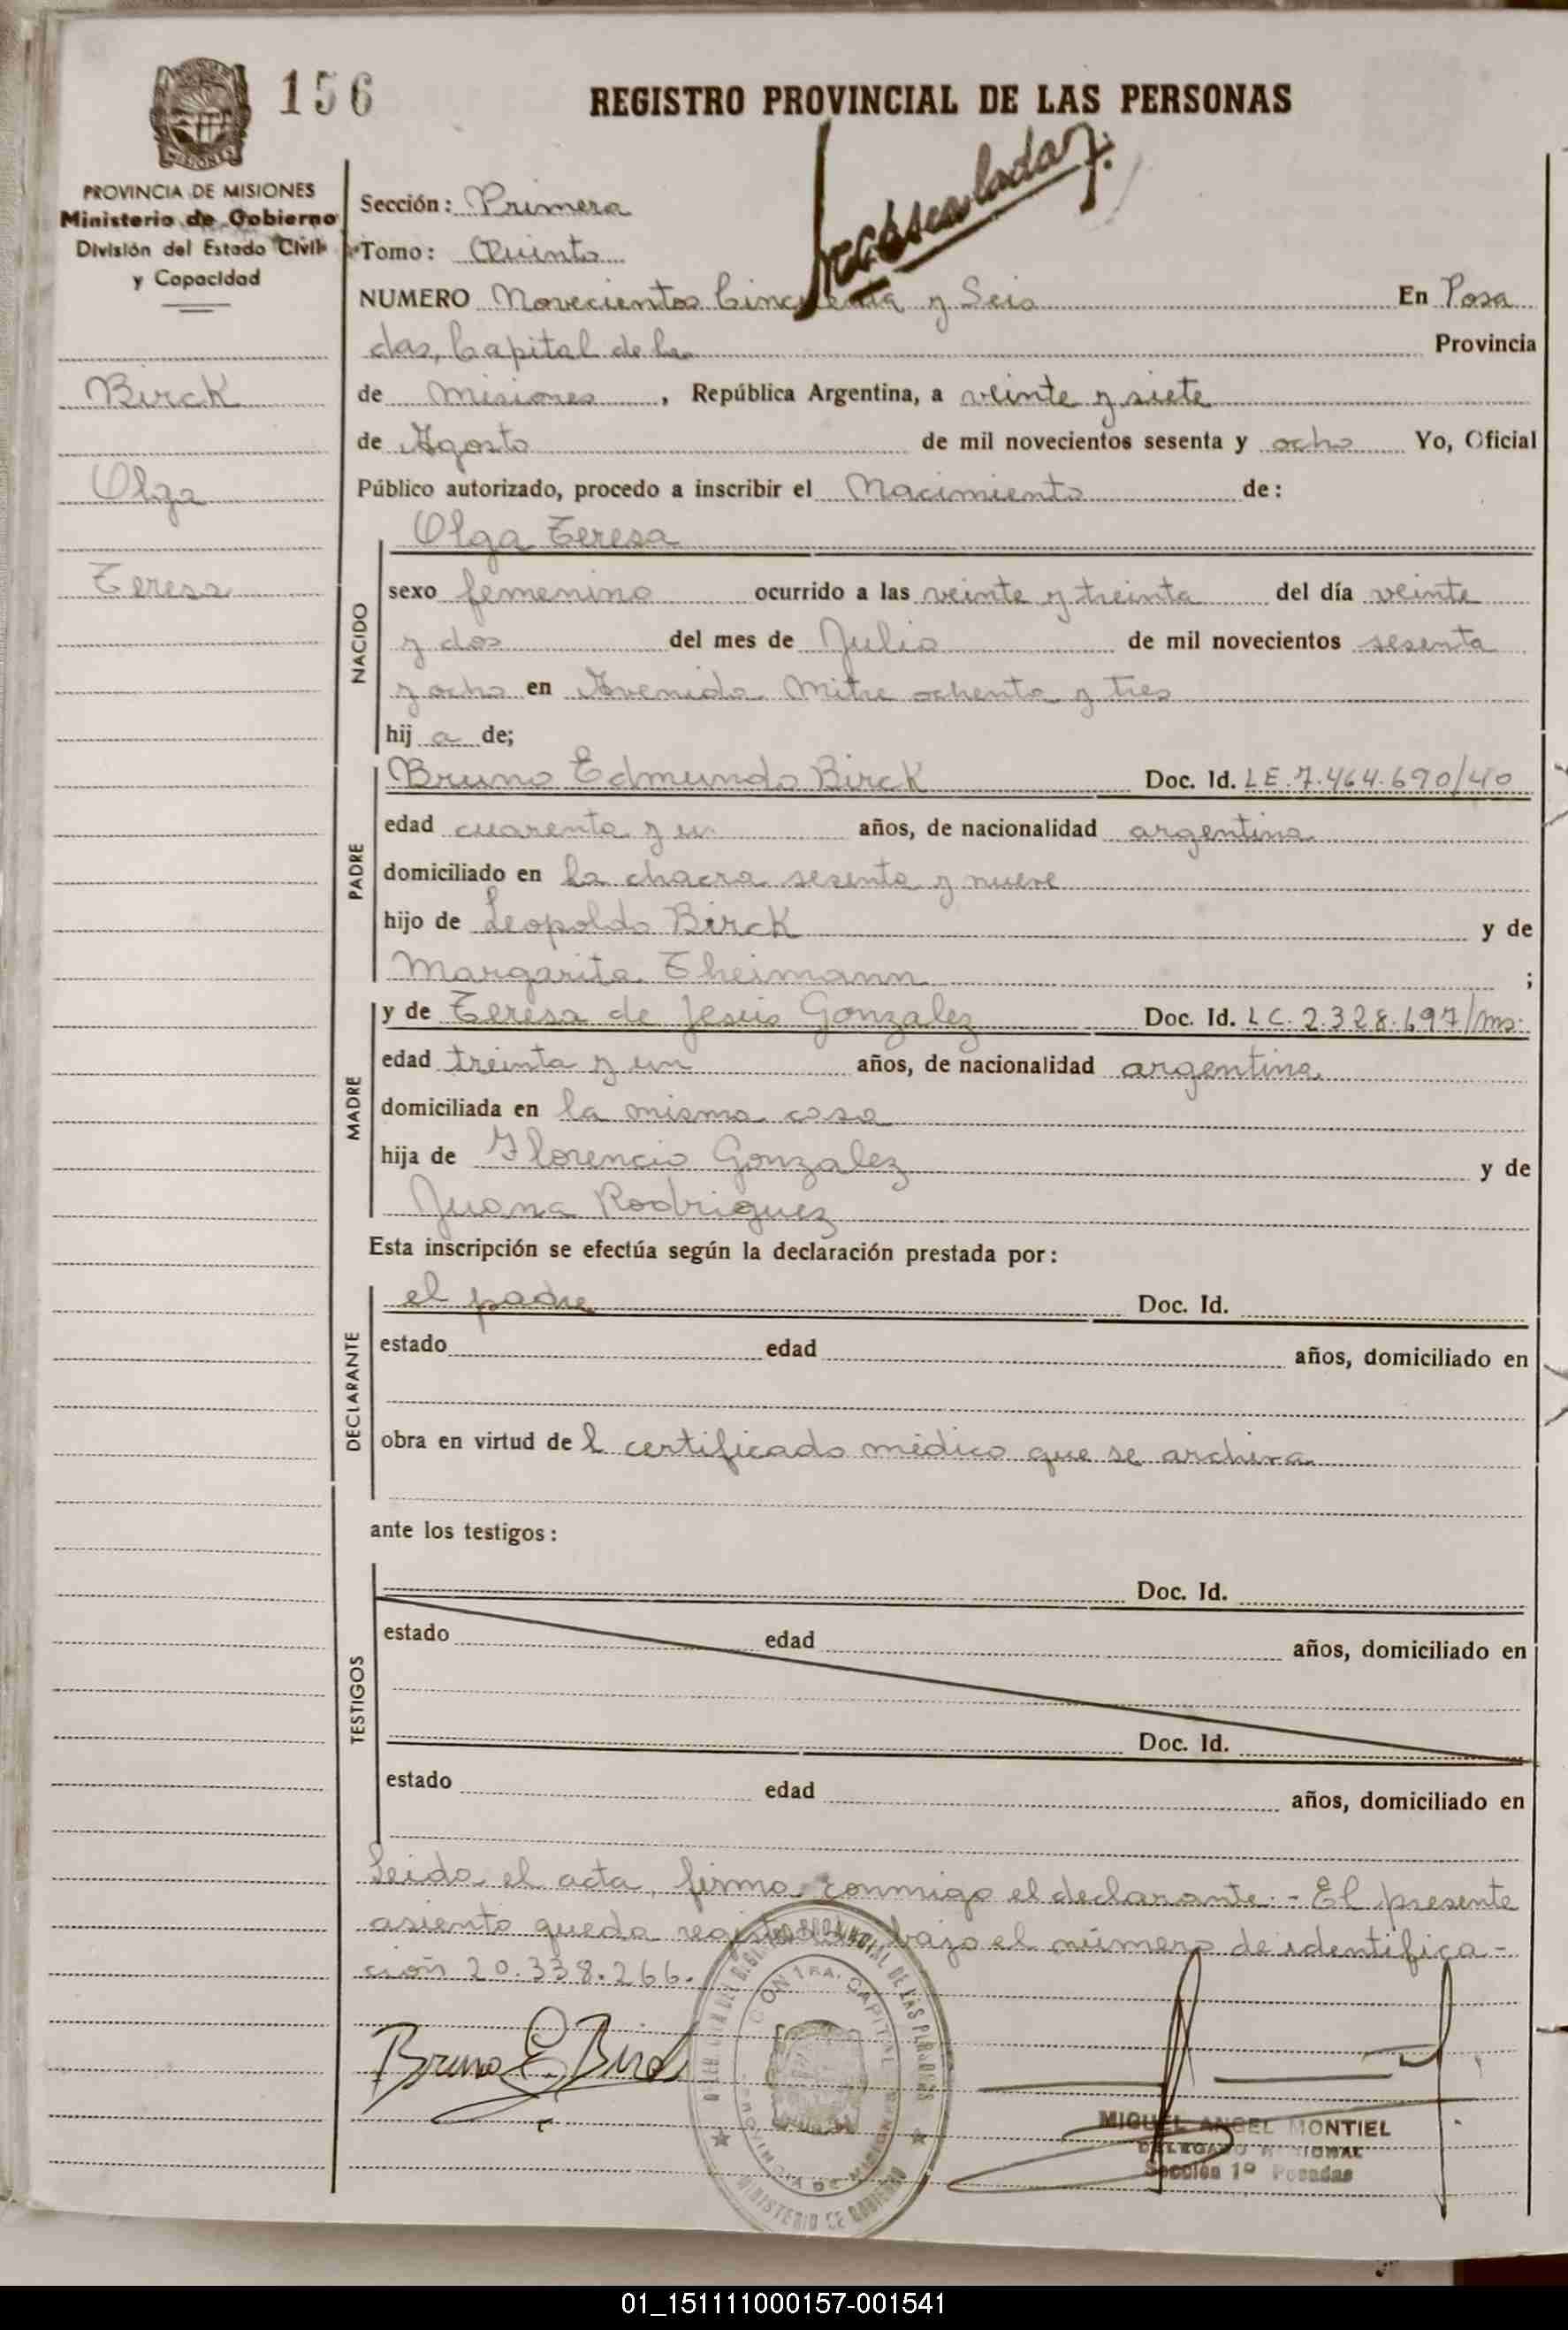 156
REGISTRO PROVINCIAL DE LAS PERSONAS
PROVINCIA DE MISIONES
Ministerio de Gobierno
División del Estado Civil
y Capacidad
Birck
Olga
Teresa
Sección: Primera
Tomo: Quinto
NUMERO Novecientos Cincuenta y Seis En Posa
das, Capital de la Provincia
de Misiones, República Argentina, a veinte y siete
de Agosto de mil novecientos sesenta y ocho Yo, Oficial
Público autorizado, procedo a inscribir el Nacimiento de:
NACIDO
Olga Teresa
sexo femenino ocurrido a las veinte y treinta del día veinte
y dos del mes de Julio de mil novecientos sesenta
y ocho en Avenida Mitre ochenta y tres
hij a de;
PADRE
Bruno Edmundo Birck Doc. Id. LE.7.464.690/40
edad cuarenta y un años, de nacionalidad argentina
domiciliado en la chacra sesenta y nueve
hijo de Leopoldo Birck y de
Margarita Theimann ;
MADRE
y de Teresa de Jesús Gonzalez Doc. Id. LC.2.328.697/ms.
edad treinta y un años, de nacionalidad argentina
domiciliada en la misma casa
hija de Florencio Gonzalez y de
Juana Rodriguez
Esta inscripción se efectúa según la declaración prestada por:
DECLARANTE
el padre Doc. Id.
estado edad años, domiciliado en
obra en virtud de l certificado médico que se archiva
ante los testigos:
TESTIGOS
Doc. Id.
estado edad años, domiciliado en
Doc. Id.
estado edad años, domiciliado en
Leida el acta, firma conmigo el declarante.- El presente
asiento queda registrado bajo el número de identifica-
ción 20.338.266.
Bruno E. Birck
MIGUEL ANGEL MONTIEL
DELEGADO
Sección 1º Posadas
REGISTRO PROVINCIAL DE LAS PERSONAS
PROVINCIA DE MISIONES
MINISTERIO DE GOBIERNO
01_151111000157-001541